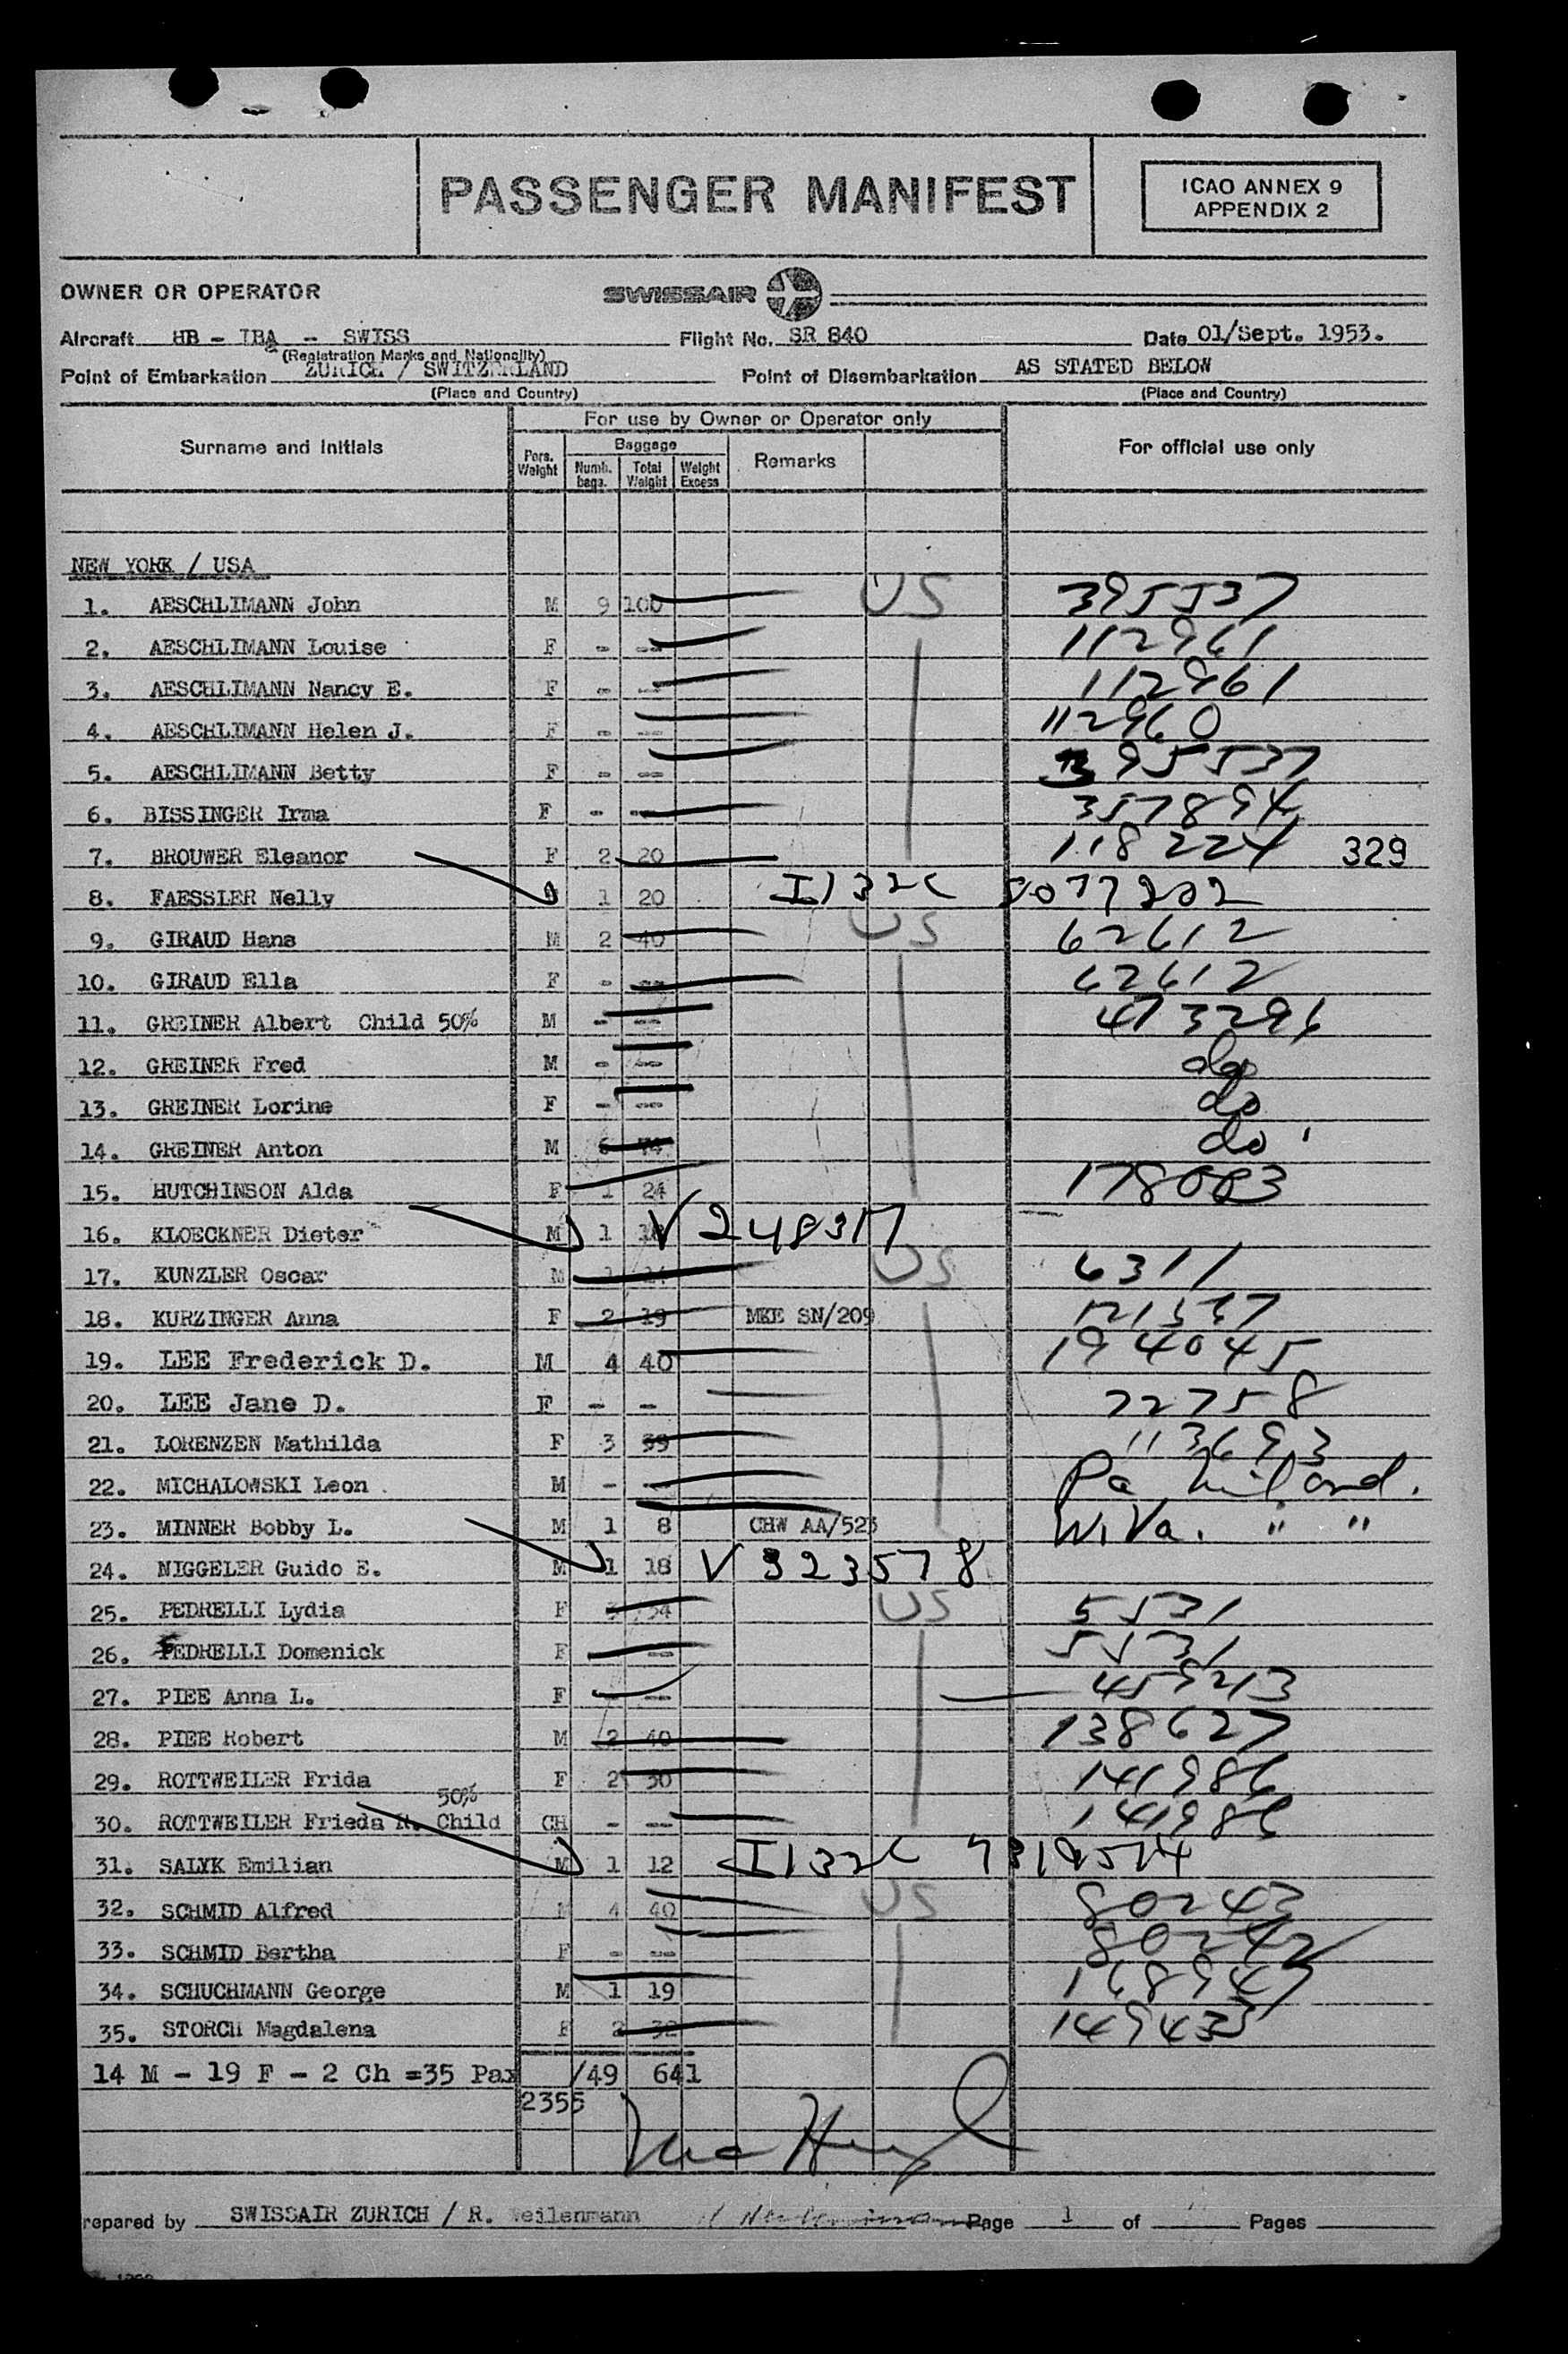 PASSENGER MANIFEST
ICAO ANNEX 9
APPENDIX 2
OWNER OR OPERATOR SWISSAIR
Aircraft HB - IBA - SWISS Flight No. SR 840 Date 01/Sept. 1953.
(Registration Marks and Nationality)
Point of Embarkation ZURICH / SWITZERLAND Point of Disembarkation AS STATED BELOW
(Place and Country) (Place and Country)
For use by Owner or Operator only
Surname and Initials Pers. Weight Baggage Numb. bags. Total Weight Weight Excess Remarks For official use only
NEW YORK / USA
1. AESCHLIMANN John M 9 100 US 395537
2. AESCHLIMANN Louise F - -- 112961
3. AESCHLIMANN Nancy E. F - -- 112961
4. AESCHLIMANN Helen J. F - -- 112960
5. AESCHLIMANN Betty F - -- 395537
6. BISSINGER Irma F - -- 357894
7. BROUWER Eleanor F 2 20 118224 329
8. FAESSLER Nelly 1 20 I132C 8077202
9. GIRAUD Hans M 2 40 US 62612
10. GIRAUD Ella F - -- 62612
11. GREINER Albert Child 50% M - -- 473296
12. GREINER Fred M - -- do
13. GREINER Lorine F - -- do
14. GREINER Anton M 74 do
15. HUTCHINSON Alda F 1 24 178083
16. KLOECKNER Dieter M 1 18 V 248317
17. KUNZLER Oscar M US 6311
18. KURZINGER Anna F 2 19 MKE SN/209 121337
19. LEE Frederick D. M 4 40 194045
20. LEE Jane D. F - - 72758
21. LORENZEN Mathilda F 3 59 113693
22. MICHALOWSKI Leon M - - Pa
23. MINNER Bobby L. M 1 8 CHW AA/523 W. Va. " "
24. NIGGELER Guido E. M 1 18 V 323578
25. PEDRELLI Lydia F 3 54 US 5531
26. PEDRELLI Domenick F -- 5531
27. PIEE Anna L. F - -- 459213
28. PIEE Robert M 2 40 138627
29. ROTTWEILER Frida F 2 30 141986
50%
30. ROTTWEILER Frieda R. Child CH - -- 141986
31. SALYK Emilian M 1 12 I132C 7319574
32. SCHMID Alfred M 4 40 US 80243
33. SCHMID Bertha F - -- 80242
34. SCHUCHMANN George M 1 19 168947
35. STORCH Magdalena F 2 32 149435
14 M - 19 F - 2 Ch =35 Pax /49 641
2355
repared by SWISSAIR ZURICH / R. Weilenmann Page 1 of Pages